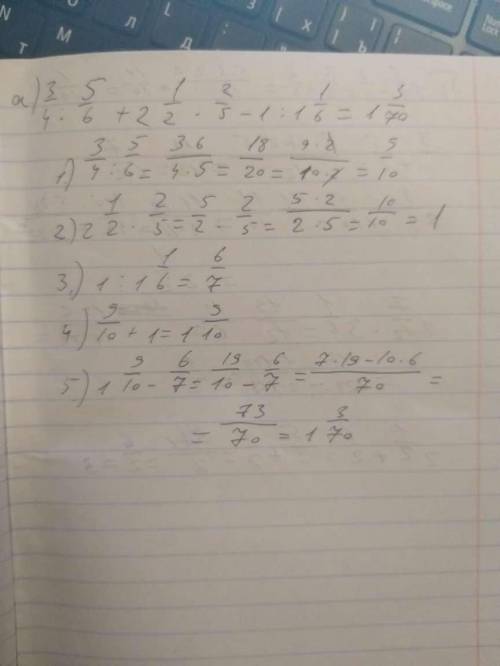 а) 3/4 : 5/6 + 2 1/2 · 2/5 - 1 : 1 1/6 = 1 3/70
1) 3/4 : 5/6 = 3·6/4·5 = 18/20 = 9·2/10·2 = 9/10
2) 2 1/2 · 2/5 = 5/2 · 2/5 = 5·2/2·5 = 10/10 = 1
3) 1 : 1 1/6 = 6/7
4) 9/10 + 1 = 1 9/10
5) 1 9/10 - 6/7 = 19/10 - 6/7 = 7·19-10·6/70 =
= 73/70 = 1 3/70